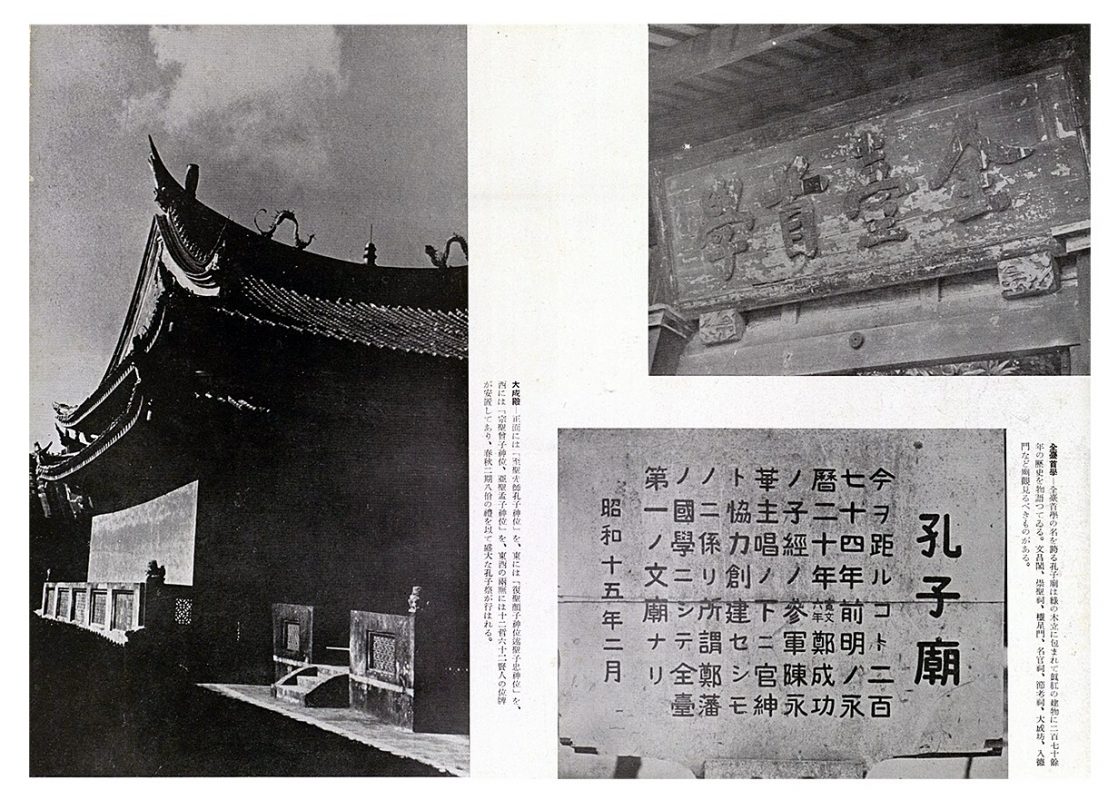 全臺首學
全臺首學―全臺首學の名を誇る孔子廟は緑の木立に包まれて眞紅の建物に二百七十餘
年の歷史を物語つてゐる。文昌閣、崇聖祠、櫺星門、名官祠、節孝祠、大成坊、入德
門など廟觀見るべきものがある。
孔子廟
今ヲ距ルコト二百
七十四年前明ノ永
曆二十年寛文六年鄭成功
ノ子經ノ參軍陳永
華主唱ノ下ニ官紳
ト協力創建セシモ
ノニ係リ所謂鄭藩
ノ國學ニシテ全臺
第一ノ文廟ナリ
昭和十五年二月
大成殿―正面には「至聖先師孔子神位」を、東には「復聖顏子神位述聖子思神位」を、
西には「宗聖曾子神位、亞聖孟子神位」を、東西の兩廡には十二哲六十二賢人の位牌
が安置してあり、春秋二期八佾の禮を以て盛大な孔子祭が行はれる。